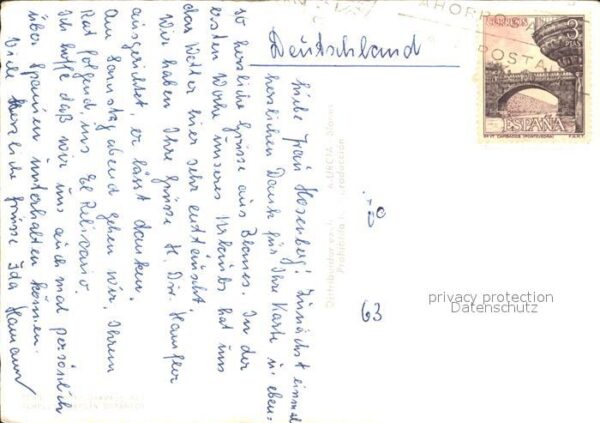 Deutschland
Liebe Frau Rosenberg! Zunächst einmal
herzlichen Dank für Ihre Karte u. eben-
so herzliche Grüsse aus Blanes. In der
ersten Woche unseres Urlaubs hat uns
das Wetter hier sehr enttäuscht.
Wir haben Ihre Grüsse H. Dir.
ausgerichtet, er lässt danken.
Am Samstag abend gehen wir, Ihrem
Rat folgend, ins El Relicario.
Ich hoffe daß wir uns auch mal persönlich
über Spanien unterhalten können.
Viele herzliche Grüsse Ida
63
AHORRO
POSTAL
3
PTAS
PUENTE CAMBADOS (PONTEVEDRA)
F.N.M.T.
ESPAÑA
CORREOS
Prohibida
privacy protection
Datenschutz